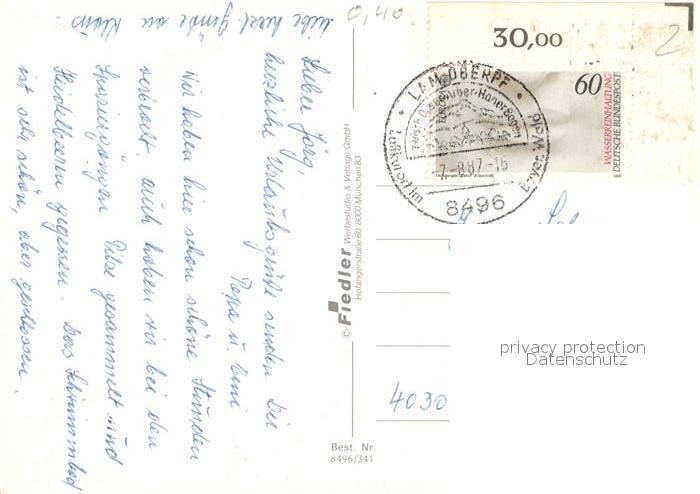 Lieber Jörg!
herzliche Urlaubsgrüße senden Dir
Papa u.
Wir haben hier schon schöne Stunden
verbracht. auch haben wir bei den
Spaziergängen Pilse gesammelt und
Heidelbeeren gegessen. Das Schwimmbad
ist sehr schön, aber geschlossen.
liebe herzl. Grüße an Klaus
© Fiedler Werbestudio & Verlags GmbH
Hofangerstraße 60, 8000 München 83
Best. Nr.
8496/341
0,40
30,00
2
60
WASSERREINHALTUNG
DEUTSCHE BUNDESPOST
LAM OBERPF
-7.-8.87.-16
Luftkurort im Bayer. Wald
8496
privacy protection
Datenschutz
4030